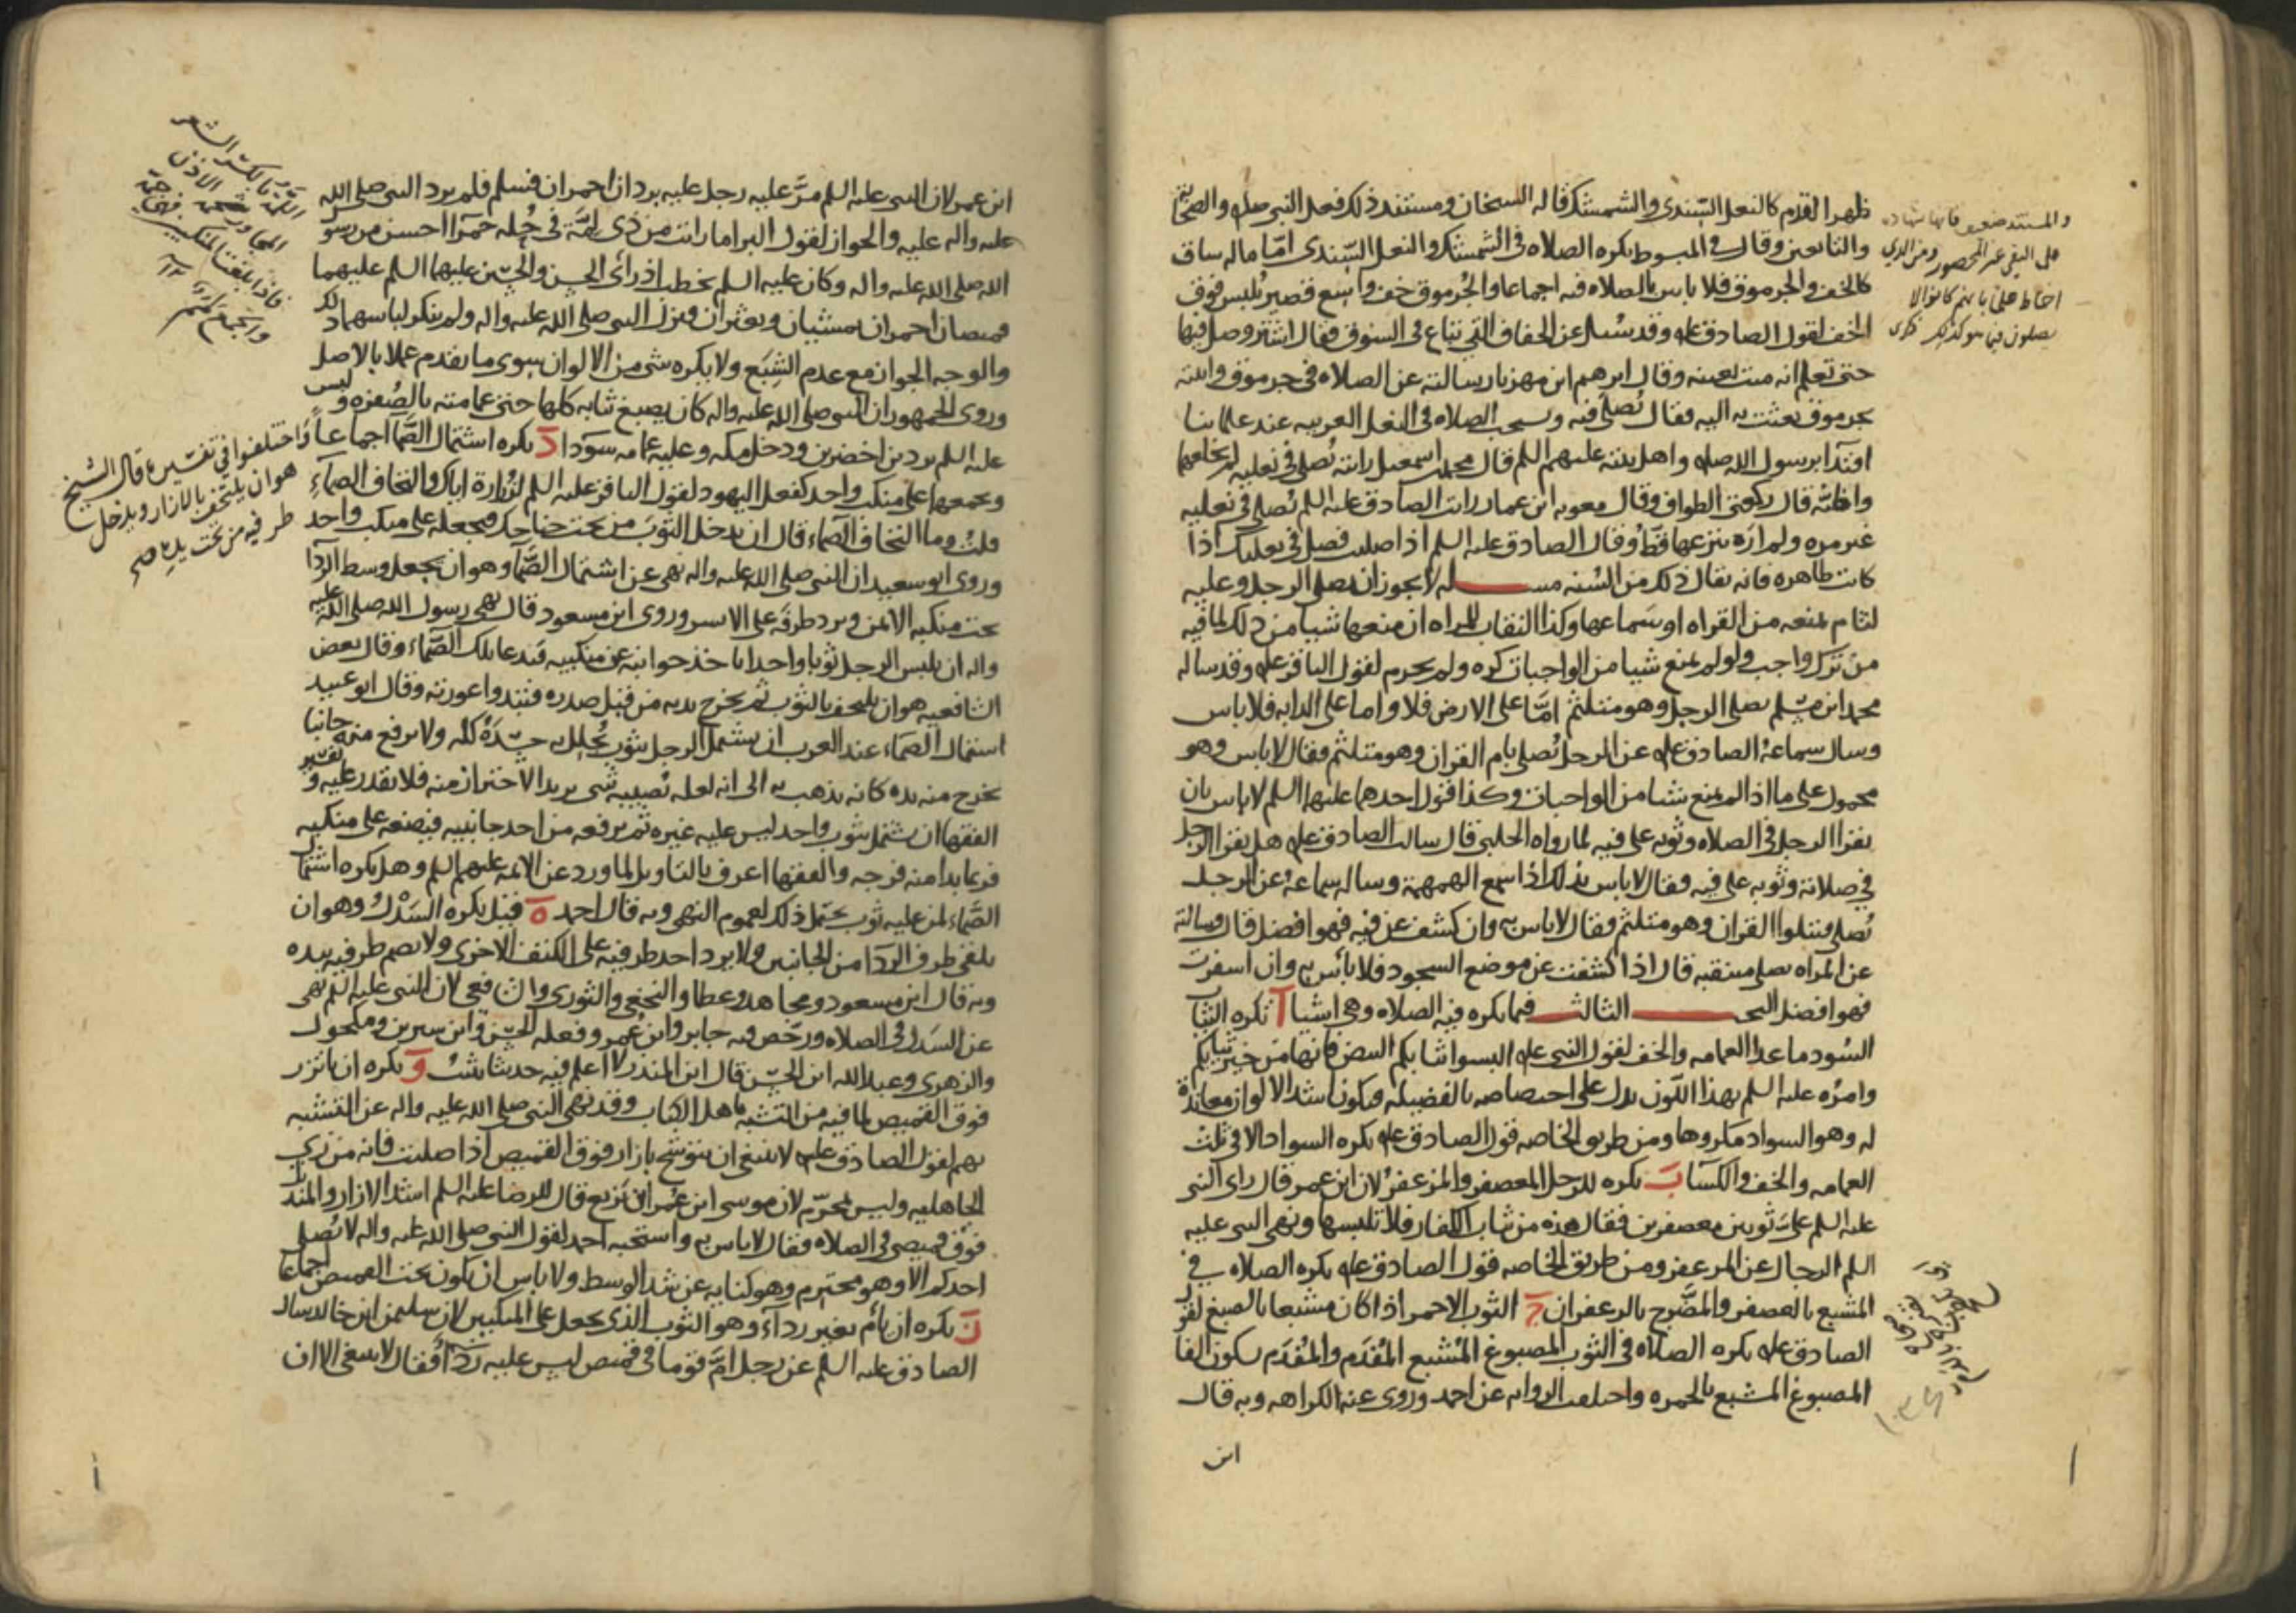 ظهر القدم كالنعل السندي والشمشك قاله الشيخان ومستند ذلك فعل النبي صلى والصحابة
والتابعين وقال في المبسوط يكره الصلاه في الشمشك والنعل السندي امّا ما له ساق
كالخف والجرموق فلا باس بالصلاه فيه اجماعا والجرموق خف واسع قصير يلبس فوق
الخف لقول الصادق عله وقد سئل عن الخفاف التي تباع في السوق فقال اشتر وصل فيها
حتى تعلم انه ميت بعينه وقال ابرهيم ابن مهزيار سالته عن الصلاه في جرموق واتيته
بجرموق بعثت به اليه فقال تصلي فيه ويستحب الصلاه في النعل العربيه عند علمائنا
اقتدآ برسول الله صله واهل بيته عليهم السلم قال محمد بن اسمعيل رايته يصلي في نعليه لم يخلعهما
واظنّه قال ركعتي الطواف وقال معويه ابن عمار رايت الصادق عليه السلم يصلي في نعليه
غير مره ولم ارَه ينزعها قطّ وقال الصادق عليه السلم اذا صليت فصل في نعليك اذا
كانت طاهره فانه يقال ذلك من السّنه مسـله لا يجوز ان يصلي الرجل وعليه
لثام يمنعه من القراه او سماعها وكذا النقاب للمراه ان منعها شيا من ذلك لما فيه
من ترك واجب ولو لم يمنع شيا من الواجبات كره ولم يحرم لقول الباقر عله وقد ساله
محمد ابن مسلم يصلي الرجل وهو متلثم امّا على الارض فلا واما على الدابه فلا باس
وسال سماعة الصادق عله عن الرجل يصلي بام القران وهو متلثم فقال لا باس وهو
محمول على ما اذا لم يمنع شيا من الواجبات وكذا قول احدهما عليهما السلم لا باس بان
يقرا الرجل في الصلاه وثوبه على فيه لما رواه الحلبي قال سالت الصادق عله هل يقرا الرجل
في صلاته وثوبه على فيه فقال لا باس بذلك اذا اسمع الهمهمة وساله سماعه عن الرجل
يصلي فيتلوا القران وهو متلثم فقال لا باس به وان كشف عن فيه فهو افضل قال وسالته
عن المراه تصلي متنقبه قال اذا كشفت عن موضع السجود فلا بأس به وان اسفرت
فهو افضل البحـ الثالث فيما يكره فيه الصلاه وهي اشيا آ تكره الثياب
السّود ما عدا العمامه والخف لقول النبي عله البسوا من ثيابكم البيض فانها من خير ثيابكم
وامرُه عليه السلم بهذا اللون يدل على اختصاصه بالفضيله فيكون اشد الالوان معاندة
له وهو السواد مكروها ومن طريق الخاصه قول الصادق عله يكره السواد الا في ثلث
العمامه والخف والكسا بَ يكره للرجل المعصفر والمزعفر لان ابن عمر قال راى النبي
عليه السلم علىّ ثوبين معصفرين فقال هذه من ثياب الكفار فلا تلبسها ونهى النبي عليه
السلم الرجال عن المزعفر ومن طريق الخاصه قول الصادق عله يكره الصلاه في
المشبع بالعصفر والمضّرج بالزعفران جَ الثوب الاحمر اذا كان مشبعا بالصبغ لقول
الصادق عله يكره الصلاه في الثوب المصبوغ المُشبع المُفْدَم والمُفْدَم بسكون الفا
المصبوغ المشبع بالحمره واختلفت الروايه عن احمد وروي عنه الكراهه وبه قال
ابن
والمستند ضعيف فانها شهاده
على النفي غير المحصور ومن الذي
احاط علمًا بانهم كانوا لا
يصلون فيما هو كذلك ذكرى
ابن عمر لان النبي عليه السلم مرّ عليه رجل عليه بردان احمران فسلم فلم يرد النبي صلى الله
عليه واله عليه والجواز لقول البرا ما رايت من ذي لِمَّة في حُله حمرآ احسن من رسول
الله صلى الله عليه واله وكان عليه السلم يخطب اذ راى الحسن والحسين عليهما السلم عليهما
قميصان احمران يمشيان ويعثران فنزل النبي صلى الله عليه واله ولم ينكر لباسهما ذلك
والوجه الجواز مع عدم الشِبَع ولا يكره شي من الالوان سوى ما تقدم عملا بالاصل
وروى الجمهور ان النبي صلى الله عليه واله كان يصبغ ثيابه كلها حتى عمامته بالصُفره ولبس
عليه السلم بردين اخضرين ودخل مكه وعليه عمامه سودا دَ يكره اشتمال الصَّمّا اجماعاً
ويجمعها على منكب واحد كفعل اليهود لقول الباقر عليه السلم لزُرارة اياك والتحاف الصمآء
قلتُ وما التحاف الصّماء قال ان يدخل الثوبَ من تحت جناحك فيجعله على منكب واحد
وروى ابو سعيد ان النبي صلى الله عليه واله نهى عن اشتمال الصَّمّا وهو ان يجعل وسط الردآ
تحت منكبه الايمن ويرد طرفَه على الايسر وروى ابن مسعود قال نهى رسول الله صلى الله عليه
واله ان يلبس الرجل ثوبا واحدا ياخذ جوانبه عن منكبيه فيدعا تلك الصَّماء وقال بعض
الشافعيه هو ان يلتحف بالثوب ثم يخرج يديه من قبل صدره فتبدوا عورته وقال ابو عبيد
اشتمال الصّماء عند العرب ان يشتمل الرجل بثوب يُجلل به جسَدَهُ كله ولا يرفع منه جانبا
يخرج منه يده كانه يذهب به الى انه لعله يُصيبه شي يريد الاحتراز منه فلا يقدر عليه وتفسير
الفقها ان يشتمل بثوب واحد ليس عليه غيره ثم يرفعه من احد جانبيه فيضعه على منكبيه
فربما بدا منه فرجه والفقها اعرف بالتاويل لما ورد عن الائمه عليهم السلم وهل يكره اشتمال
الصّماء لمن عليه ثوب يحتمل ذلك لعموم النهي وبه قال احمد هَ قيل يكره السَدْل وهو ان
يلقي طرف الردآ من الجانبين ولا يرد احد طرفيه على الكتف الاخرى ولا يضم طرفيه بيده
وبه قال ابن مسعود ومجاهد وعطا والنخعي والثوري والشافعي لان النبي عليه السلم نهى
عن السَدل في الصلاه ورخّص فيه جابر وابن عُمر وفعله الحسن وابن سيرين ومكحول
والزهري وعبد الله ابن الحسن قال ابن المنذر لا اعلم فيه حديثا يثبت وَ يكره ان ياتزر
فوق القميص لما فيه من التشبه باهل الكتاب وقد نهى النبي صلى الله عليه واله عن التشبه
بهم لقول الصادق عله لا ينبغي ان يتوشح بازار فوق القميص اذا صليت فانه من زي
الجاهليه وليس بمحرّم لان موسى ابن عُمر ابن بَزيع قال للرضا عليه السلم اشد الازار والمنديل
فوق قميصي في الصلاه فقال لا باس به واستحبه احمد لقول النبي صلى الله عليه واله لا يُصلي
احدكم الا وهو محتزم وهو كنايه عن شد الوسط ولا باس ان يكون تحت القميص اجماعا
زَ يكره ان يأم بغير ردآء وهو الثوب الذي يجعل على المنكبين لان سليمن ابن خالد سال
الصادق عليه السلم عن رجل امَّ قوما في قميص ليس عليه ردآ فقال لا ينبغي الا ان
اللمّة بالكسر الشعر
المجاور شحمة الاذن
فاذا بلغت المنكبين فهي جمّة
والجمع لمم
واختلفوا في تفسيره قال الشيخ
هو ان يلتحف بالازار ويدخل
طرفيه من تحت يده صح